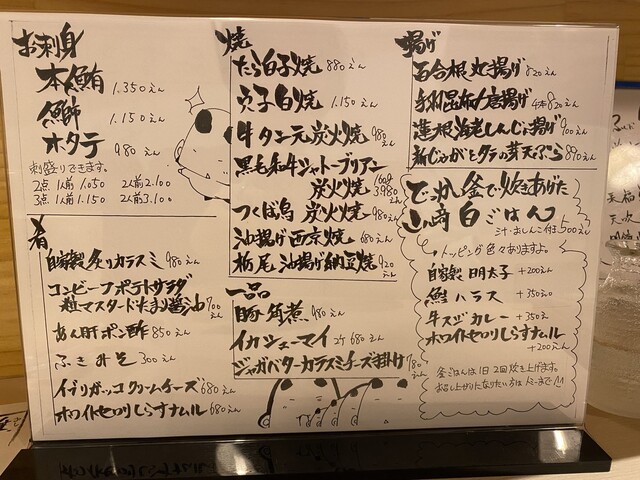 お刺身
本鮪 1.350えん
鰤 1.150えん
ホタテ 980えん
刺盛りできます。
2点 1人前 1.050 2人前 2.100
3点 1人前 1.150 2人前 3.100
肴
自家製炙りカラスミ 980えん
コンビーフポテトサラダ
粒マスタードたまり醤油 700えん
あん肝ポン酢 850えん
ふきみそ 300えん
イブリガッコクリームチーズ 680えん
ホワイトセロリしらすナムル 680えん
焼
たら白子焼 880えん
穴子白焼 1.150えん
牛タン元炭火焼 980えん
黒毛和牛シャトーブリアン
炭火焼 160g 3980えん
つくば鳥 炭火焼 980えん
油揚げ西京焼 680えん
栃尾油揚げ納豆焼 920えん
一品
豚角煮 980えん
イカシューマイ 2ケ 680えん
ジャガバターカラスミチーズ掛け 780えん
揚げ
百合根丸揚げ 820えん
手羽昆布〆唐揚げ 4本820えん
蓮根海老しんじょ揚げ 900えん
新じゃがとタラの芽天ぷら 890えん
でっかい釜で炊きあげた
山崎白ごはん
汁・おしんこ付き 500えん
トッピング色々ありますよ。
自家製 明太子 +200えん
鮭ハラス +350えん
牛スジカレー +350えん
ホワイトセロリしらすナムル
+200えん
釜ごはんは1日2回炊き上げます。
お召し上がりになりたい方は